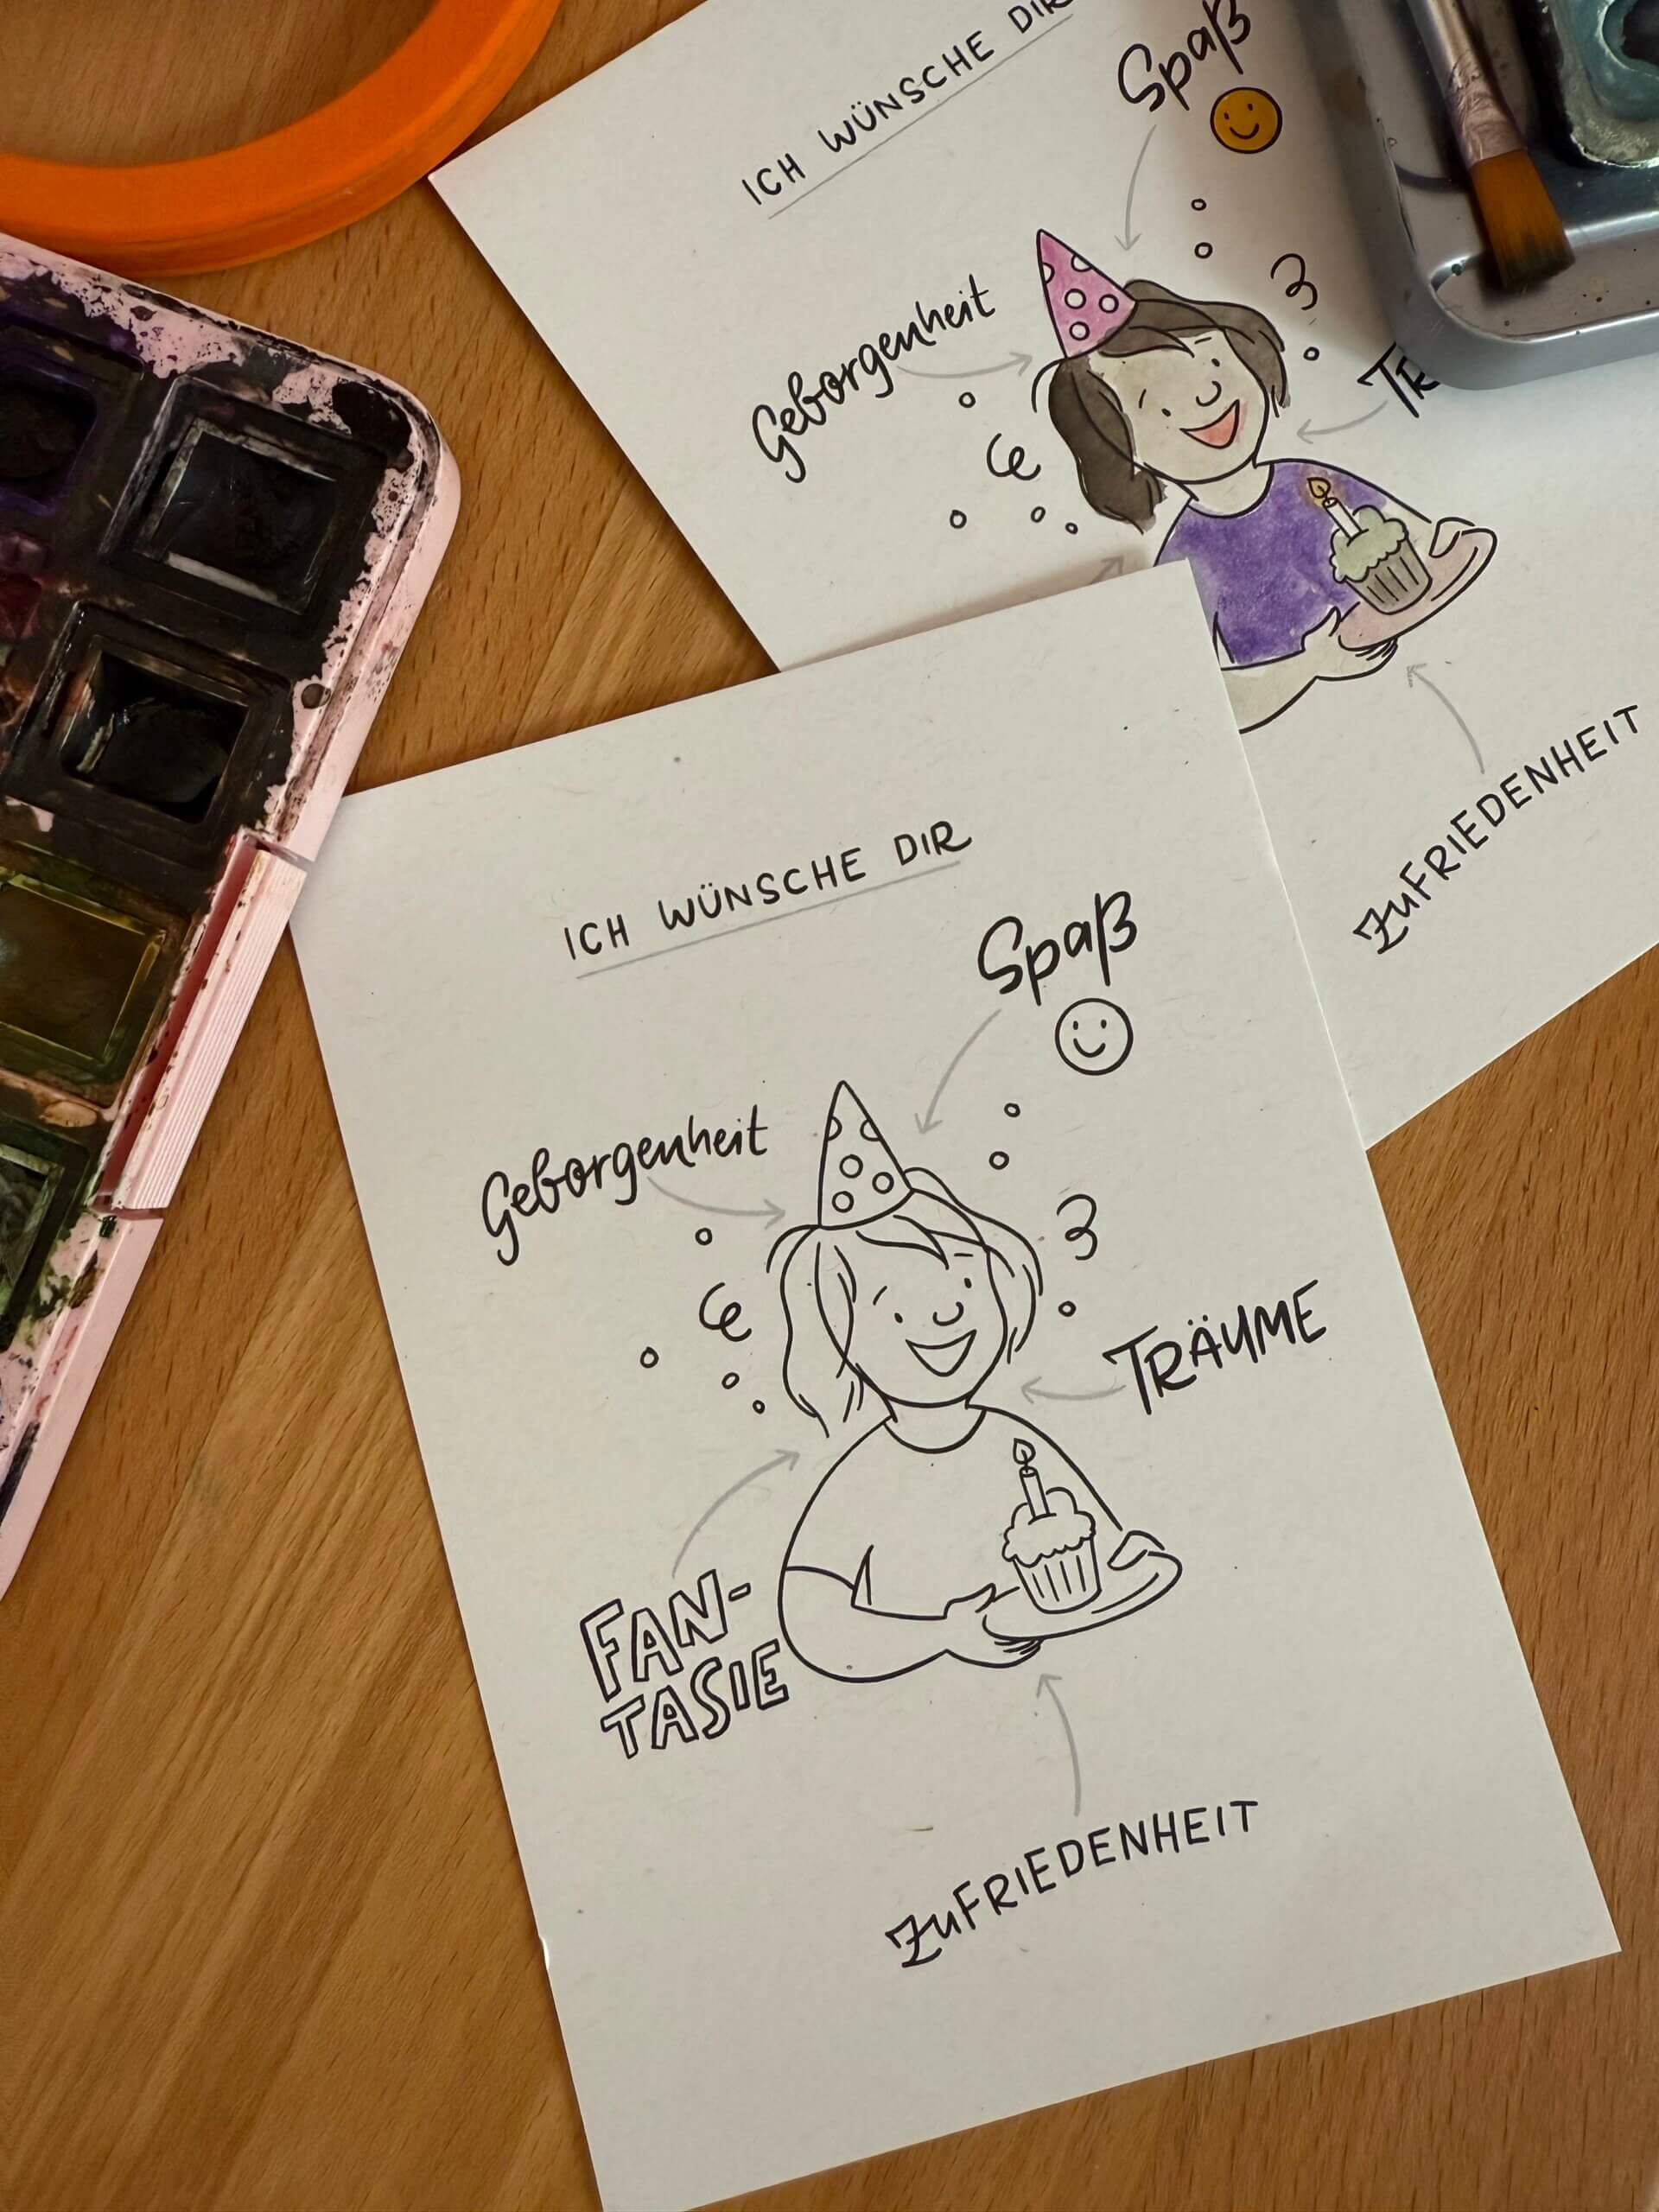 ICH WÜNSCHE DIR
Spaß
Geborgenheit
TR
ZUFRIEDENHEIT
ICH WÜNSCHE DIR
Spaß
Geborgenheit
TRÄUME
FAN-
TASIE
ZUFRIEDENHEIT